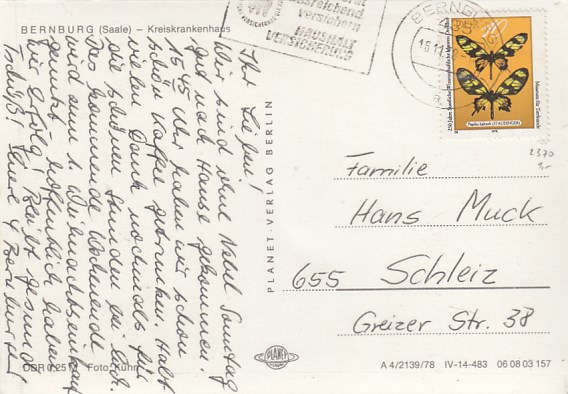 BERNBURG (Saale) – Kreiskrankenhaus
Ihr Lieben!
Wir sind ohne Nebel Sonntag
gut nach Hause gekommen.
15.45 Uhr haben wir schon
schön Kaffee getrunken.
vielen Dank nochmals für
die schönen Stunden bei Euch.
Das kommende Wochenende
wird zum Weihnachtseinkauf
genutzt, hoffentlich haben
wir Erfolg! Bleibt gesund
Tschüß! Eure
Bernburger
DDR 0,25 M Foto: Kühn
PLANET-VERLAG BERLIN
PLANET
ausreichend
versichern
HAUSHALT
VERSICHERUNG
BERNBURG
35
250 Jahre Staatliche Wissenschaftliche Sammlungen
Museum für Tierkunde
2370
Familie
Hans Muck
655 Schleiz
Greizer Str. 38
A 4/2139/78 IV-14-483 06 08 03 157